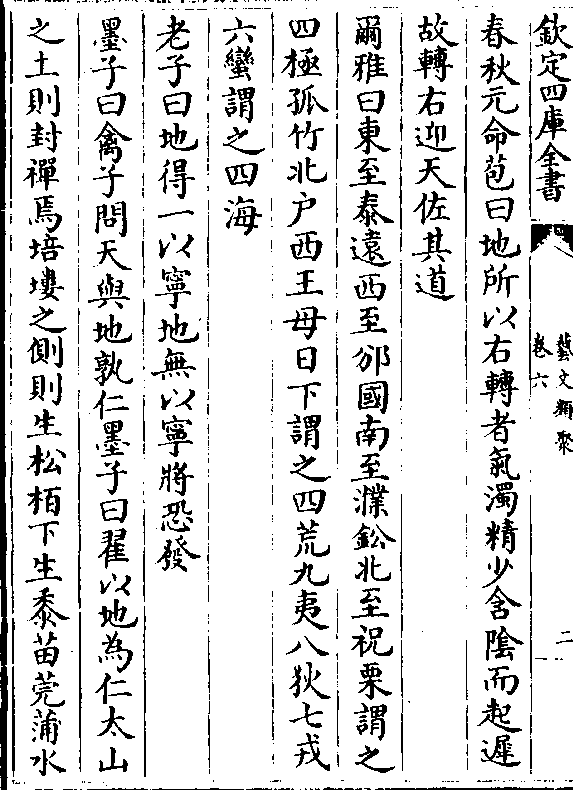 欽定四庫全書
藝文類聚
卷六
二
春秋元命苞曰地所以右轉者氣濁精少含陰而起遲
故轉右迎天佐其道
爾雅曰東至泰遠西至邠國南至濮鈆北至祝栗謂之
四極孤竹北户西王母日下謂之四荒九夷八狄七戎
六蠻謂之四海
老子曰地得一以寧地無以寧將恐發
墨子曰禽子問天與地孰仁墨子曰翟以地為仁太山
之土則封禪焉培塿之側則生松栢下生黍苗莞蒲水